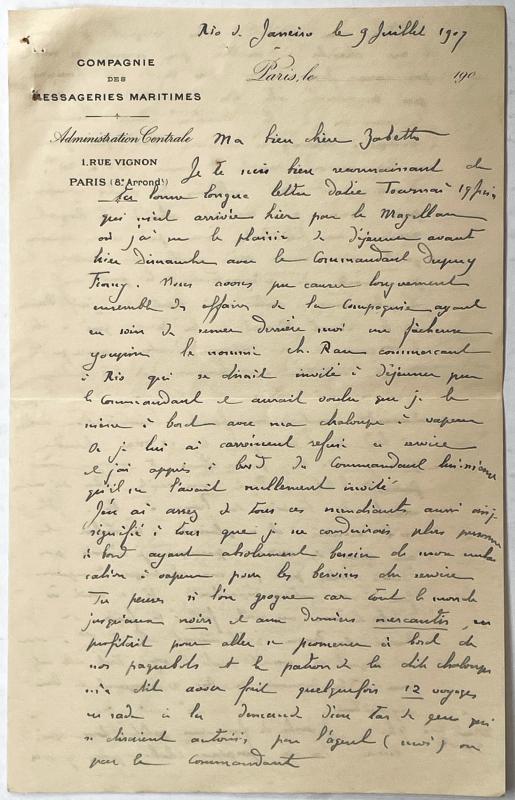 Rio de Janeiro le 9 Juillet 1907
COMPAGNIE
DES
MESSAGERIES MARITIMES
Paris, le 190
Administration Centrale
1, RUE VIGNON
PARIS (8e Arrondt)
Ma bien chère Zabeth
Je te suis bien reconnaissant de
ta bonne longue lettre datée Tournai 19 Juin
qui m'est arrivée hier par le Magellan
où j'ai eu le plaisir de déjeuner avant
hier Dimanche avec le Commandant Dupuy
Fromy. Nous avons pu causer longuement
ensemble des affaires de la Compagnie ayant
eu soin de semer derrière moi un fâcheux
youpin le nommé Ch. Rau commerçant
à Rio qui se disait invité à déjeuner par
le Commandant et aurait voulu que je le
mène à bord avec ma chaloupe à vapeur
Or je lui ai carrément refusé ce service
et j'ai appris à bord du Commandant lui-même
qu'il ne l'avait nullement invité
J'en ai assez de tous ces mendiants aussi ai-je
signifié à tous que je ne conduirais plus personne
à bord ayant absolument besoin de mon embar
cation à vapeur pour les besoins du service
Tu penses si l'on grogne car tout le monde
jusqu'aux noirs et aux derniers mercantis, en
profitait pour aller se promener à bord de
nos paquebots et le patron de la dite chaloupe
m'a dit avoir fait quelquefois 12 voyages
en rade à la demande d'un tas de gens qui
se disaient autorisés par l'agent (moi) ou
par le commandant